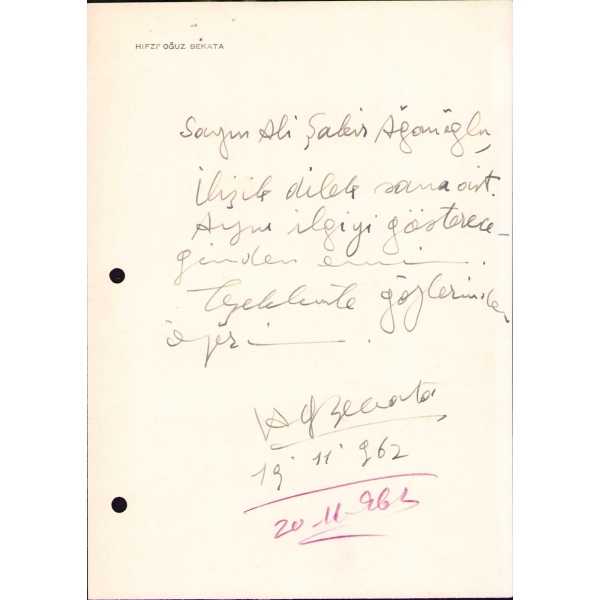 HIFZI OĞUZ BEKATA
Sayın Ali Şakir Ağanoğlu,
İlişik dilek sana ait.
Aynı ilgiyi gösterece-
ğinden eminim.
Teşekkürle gözlerinden
öperim.
H O Bekata
19 11 962
20-11-962